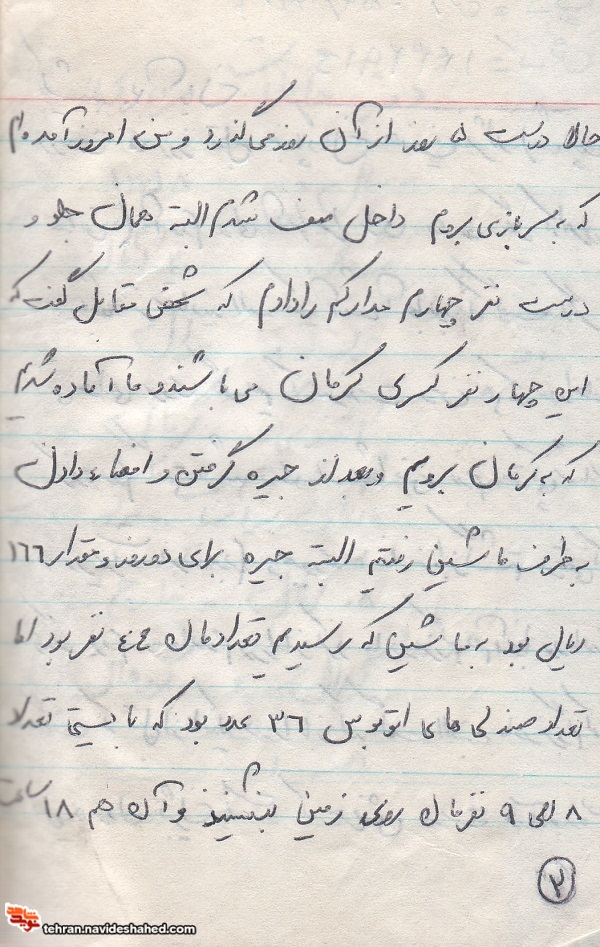 حالا درست ۵ روز از آن روز می‌گذرد و من امروز آمده‌ام
که به سربازی بروم داخل صف شدم البته همان جلو و
درست نفر چهارم مدارکم را دادم که شخص مقابل گفت که
این چهار نفر کسری کرمان می‌باشند و ما آماده شدیم
که به کرمان برویم و بعد از جیره گرفتن و امضاء دادن
به طرف ماشین رفتیم البته جیره برای دو روز و مقدار ۱۶۶
ریال بود به ماشین که رسیدیم تعدادمان ۴۴ نفر بود اما
تعداد صندلی های اتوبوس ۳۶ عدد بود که بایستی تعداد
۸ الی ۹ نفرمان روی زمین بنشینند و آن هم ۱۸ ساعت
۳
نوید شاهد
tehran.navideshahed.com